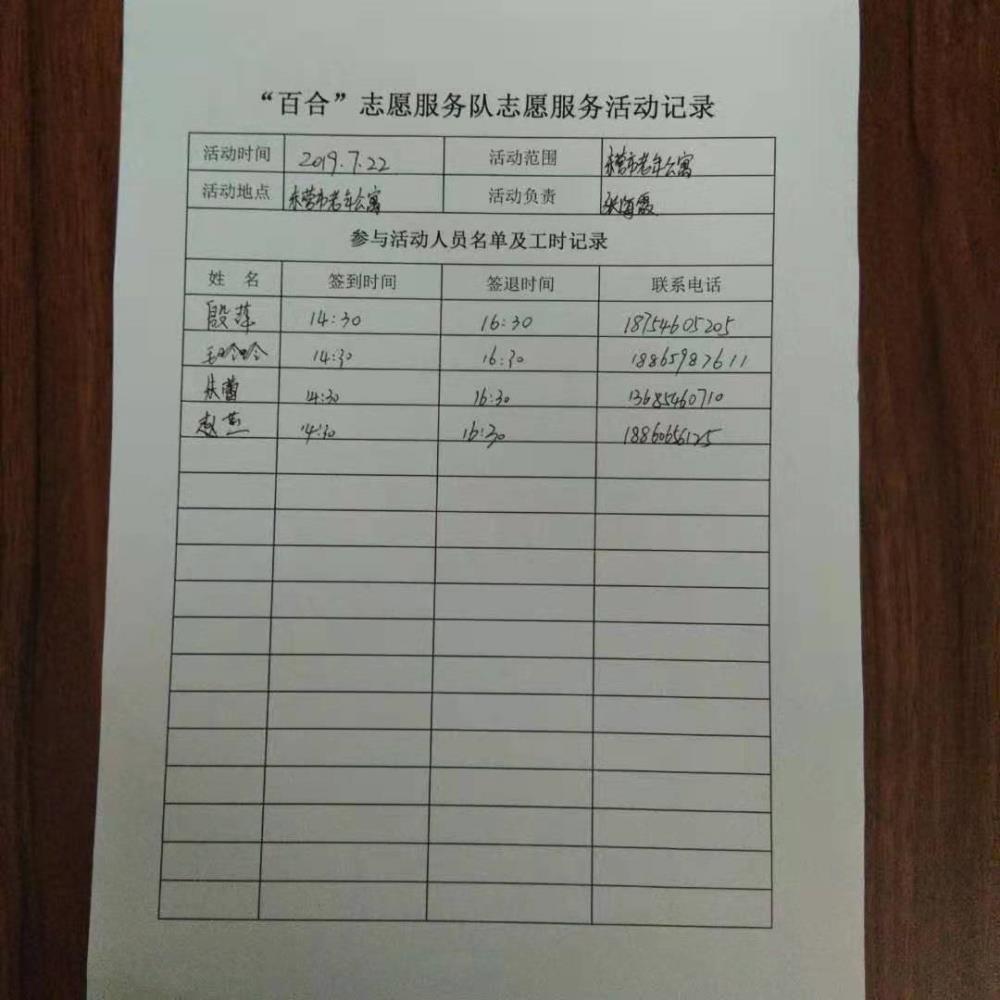 “百合”志愿服务队志愿服务活动记录
活动时间 2019.7.22 活动范围 东营市老年公寓
活动地点 东营市老年公寓 活动负责 张海霞
参与活动人员名单及工时记录
姓 名 签到时间 签退时间 联系电话
殷萍 14:30 16:30 18754605205
14:30 16:30 18865987611
朱蕾 14:30 16:30 13685460710
赵燕 14:30 16:30 18860656125